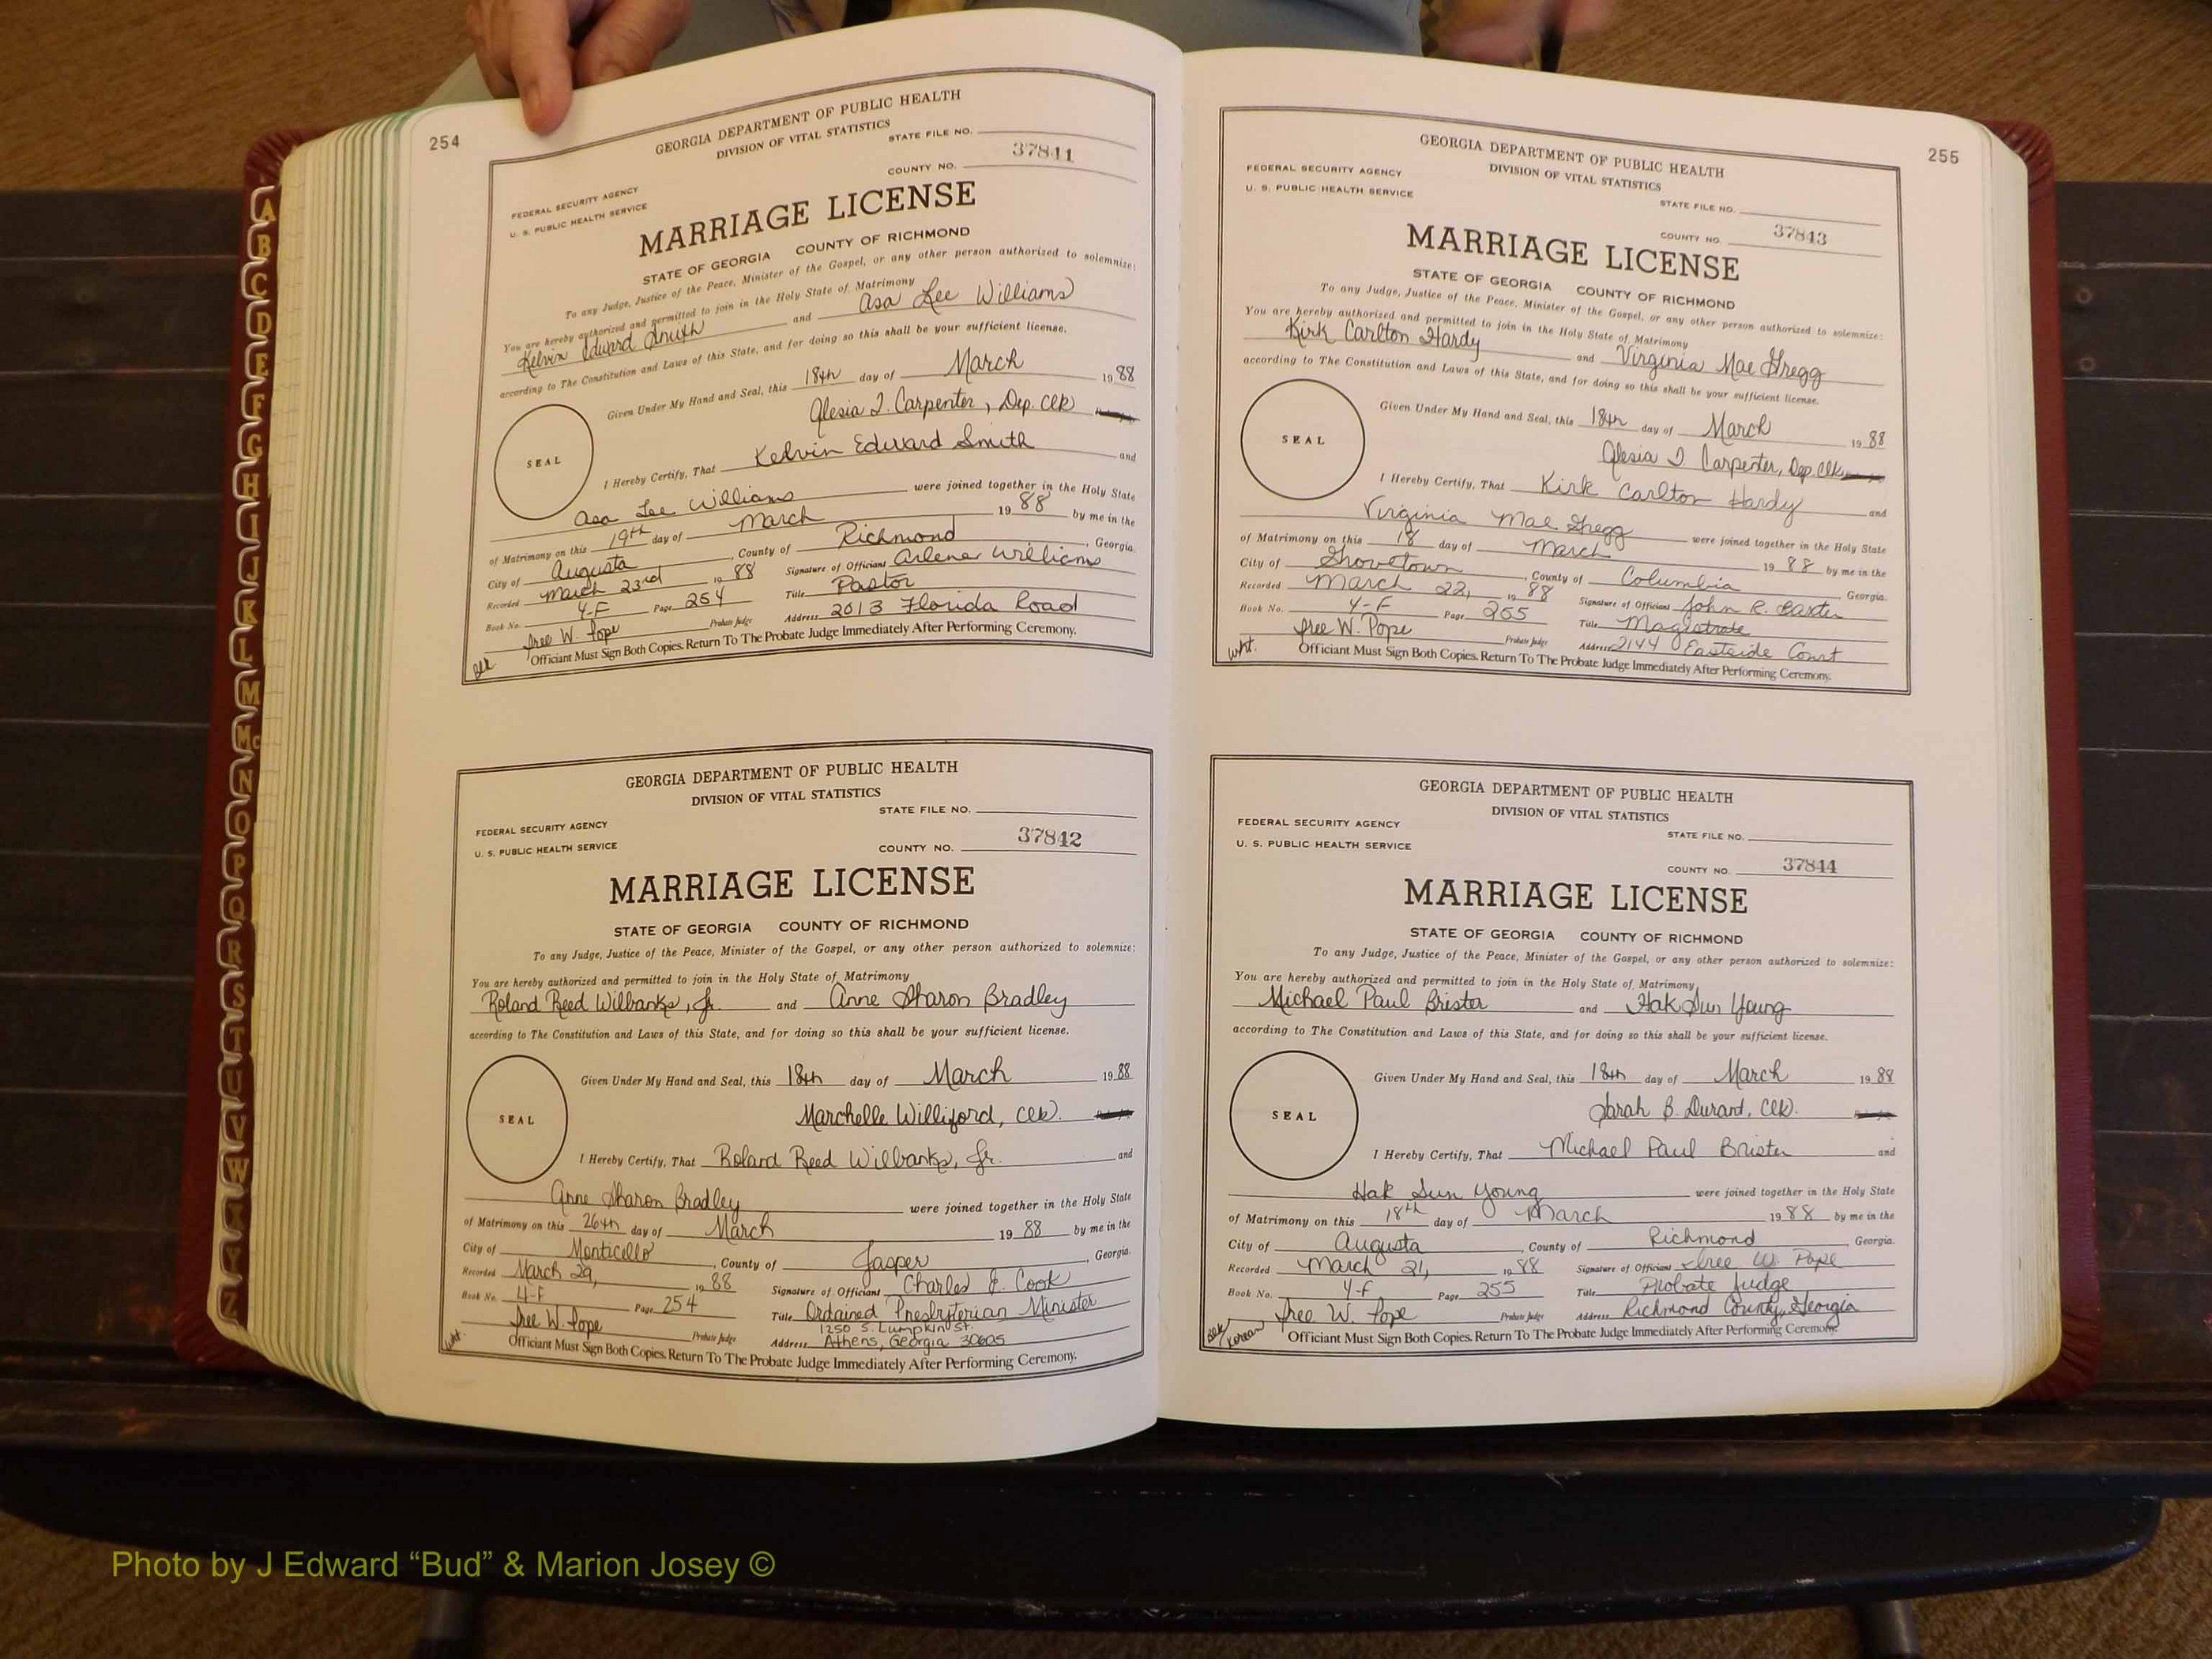 254
GEORGIA DEPARTMENT OF PUBLIC HEALTH
DIVISION OF VITAL STATISTICS
STATE FILE NO.
COUNTY NO. 37841
FEDERAL SECURITY AGENCY
U. S. PUBLIC HEALTH SERVICE
MARRIAGE LICENSE
STATE OF GEORGIA COUNTY OF RICHMOND
To any Judge, Justice of the Peace, Minister of the Gospel, or any other person authorized to solemnize:
You are hereby authorized and permitted to join in the Holy State of Matrimony
Kelvin Edward Smith and Asa Lee Williams
according to The Constitution and Laws of this State, and for doing so this shall be your sufficient license.
Given Under My Hand and Seal, this 18th day of March 1988
Glesia J. Carpenter, Dep. Clk
SEAL
I Hereby Certify, That Kelvin Edward Smith and
Asa Lee Williams were joined together in the Holy State
of Matrimony on this 19th day of March 1988 by me in the
City of Augusta, County of Richmond, Georgia.
Recorded March 23rd 1988 Signature of Officiant Arlene Williams
Book No. 4-F Page 254 Title Pastor
Free W. Pope Probate Judge Address 2013 Florida Road
Officiant Must Sign Both Copies. Return To The Probate Judge Immediately After Performing Ceremony.
GEORGIA DEPARTMENT OF PUBLIC HEALTH
DIVISION OF VITAL STATISTICS
STATE FILE NO.
FEDERAL SECURITY AGENCY
U. S. PUBLIC HEALTH SERVICE
COUNTY NO. 37842
MARRIAGE LICENSE
STATE OF GEORGIA COUNTY OF RICHMOND
To any Judge, Justice of the Peace, Minister of the Gospel, or any other person authorized to solemnize:
You are hereby authorized and permitted to join in the Holy State of Matrimony
Roland Reed Wilbanks, Jr. and Anne Sharon Bradley
according to The Constitution and Laws of this State, and for doing so this shall be your sufficient license.
Given Under My Hand and Seal, this 18th day of March 1988
Marchelle Williford, Clk.
SEAL
I Hereby Certify, That Roland Reed Wilbanks, Jr. and
Anne Sharon Bradley were joined together in the Holy State
of Matrimony on this 26th day of March 1988 by me in the
City of Monticello, County of Jasper, Georgia.
Recorded March 29, 1988 Signature of Officiant Charles J. Cook
Book No. 4-F Page 254 Title Ordained Presbyterian Minister
1250 S. Lumpkin St.
Free W. Pope Probate Judge Address Athens, Georgia 30605
wht. Officiant Must Sign Both Copies. Return To The Probate Judge Immediately After Performing Ceremony.
255
GEORGIA DEPARTMENT OF PUBLIC HEALTH
DIVISION OF VITAL STATISTICS
FEDERAL SECURITY AGENCY
U. S. PUBLIC HEALTH SERVICE
STATE FILE NO.
COUNTY NO. 37843
MARRIAGE LICENSE
STATE OF GEORGIA COUNTY OF RICHMOND
To any Judge, Justice of the Peace, Minister of the Gospel, or any other person authorized to solemnize:
You are hereby authorized and permitted to join in the Holy State of Matrimony
Kirk Carlton Hardy and Virginia Mae Gregg
according to The Constitution and Laws of this State, and for doing so this shall be your sufficient license.
Given Under My Hand and Seal, this 18th day of March 1988
Glesia J. Carpenter, Dep. Clk
SEAL
I Hereby Certify, That Kirk Carlton Hardy and
Virginia Mae Gregg were joined together in the Holy State
of Matrimony on this 18 day of March 1988 by me in the
City of Grovetown, County of Columbia Georgia.
Recorded March 22, 1988 Signature of Officiant John R. Baxter
Book No. 4-F Page 255 Title Magistrate
Free W. Pope Probate Judge Address 2144 Eastside Court
wht. Officiant Must Sign Both Copies. Return To The Probate Judge Immediately After Performing Ceremony.
GEORGIA DEPARTMENT OF PUBLIC HEALTH
DIVISION OF VITAL STATISTICS
FEDERAL SECURITY AGENCY
U. S. PUBLIC HEALTH SERVICE
STATE FILE NO.
COUNTY NO. 37844
MARRIAGE LICENSE
STATE OF GEORGIA COUNTY OF RICHMOND
To any Judge, Justice of the Peace, Minister of the Gospel, or any other person authorized to solemnize:
You are hereby authorized and permitted to join in the Holy State of Matrimony
Michael Paul Brister and Hak Sun Young
according to The Constitution and Laws of this State, and for doing so this shall be your sufficient license.
Given Under My Hand and Seal, this 18th day of March 1988
Sarah B. Durant, Clk.
SEAL
I Hereby Certify, That Michael Paul Brister and
Hak Sun Young were joined together in the Holy State
of Matrimony on this 18th day of March 1988 by me in the
City of Augusta, County of Richmond, Georgia.
Recorded March 21, 1988 Signature of Officiant Free W. Pope
Book No. 4-F Page 255 Title Probate Judge
Free W. Pope Probate Judge Address Richmond County, Georgia
Korean Officiant Must Sign Both Copies. Return To The Probate Judge Immediately After Performing Ceremony.
A
B
C
D
E
F
G
H
I
J
K
L
M
Mc
N
O
P
Q
R
S
T
U
V
W
X
Y
Z
Photo by J Edward “Bud” & Marion Josey ©